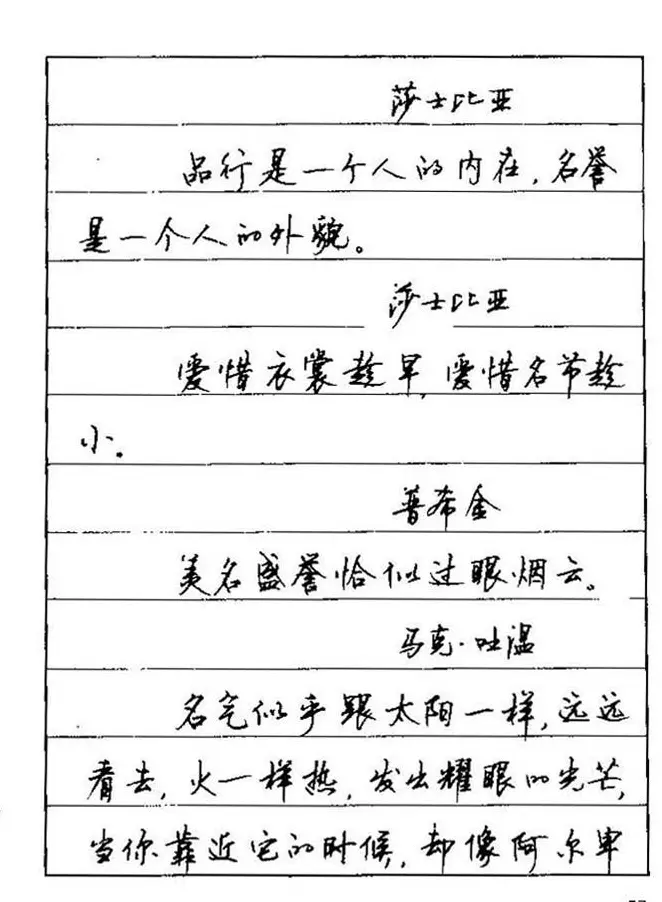 莎士比亚
品行是一个人的内在，名誉
是一个人的外貌。
莎士比亚
爱惜衣裳趁早，爱惜名节趁
小。
普希金
美名盛誉恰似过眼烟云。
马克·吐温
名气似乎跟太阳一样，远远
看去，火一样热，发出耀眼的光芒，
当你靠近它的时候，却像阿尔卑